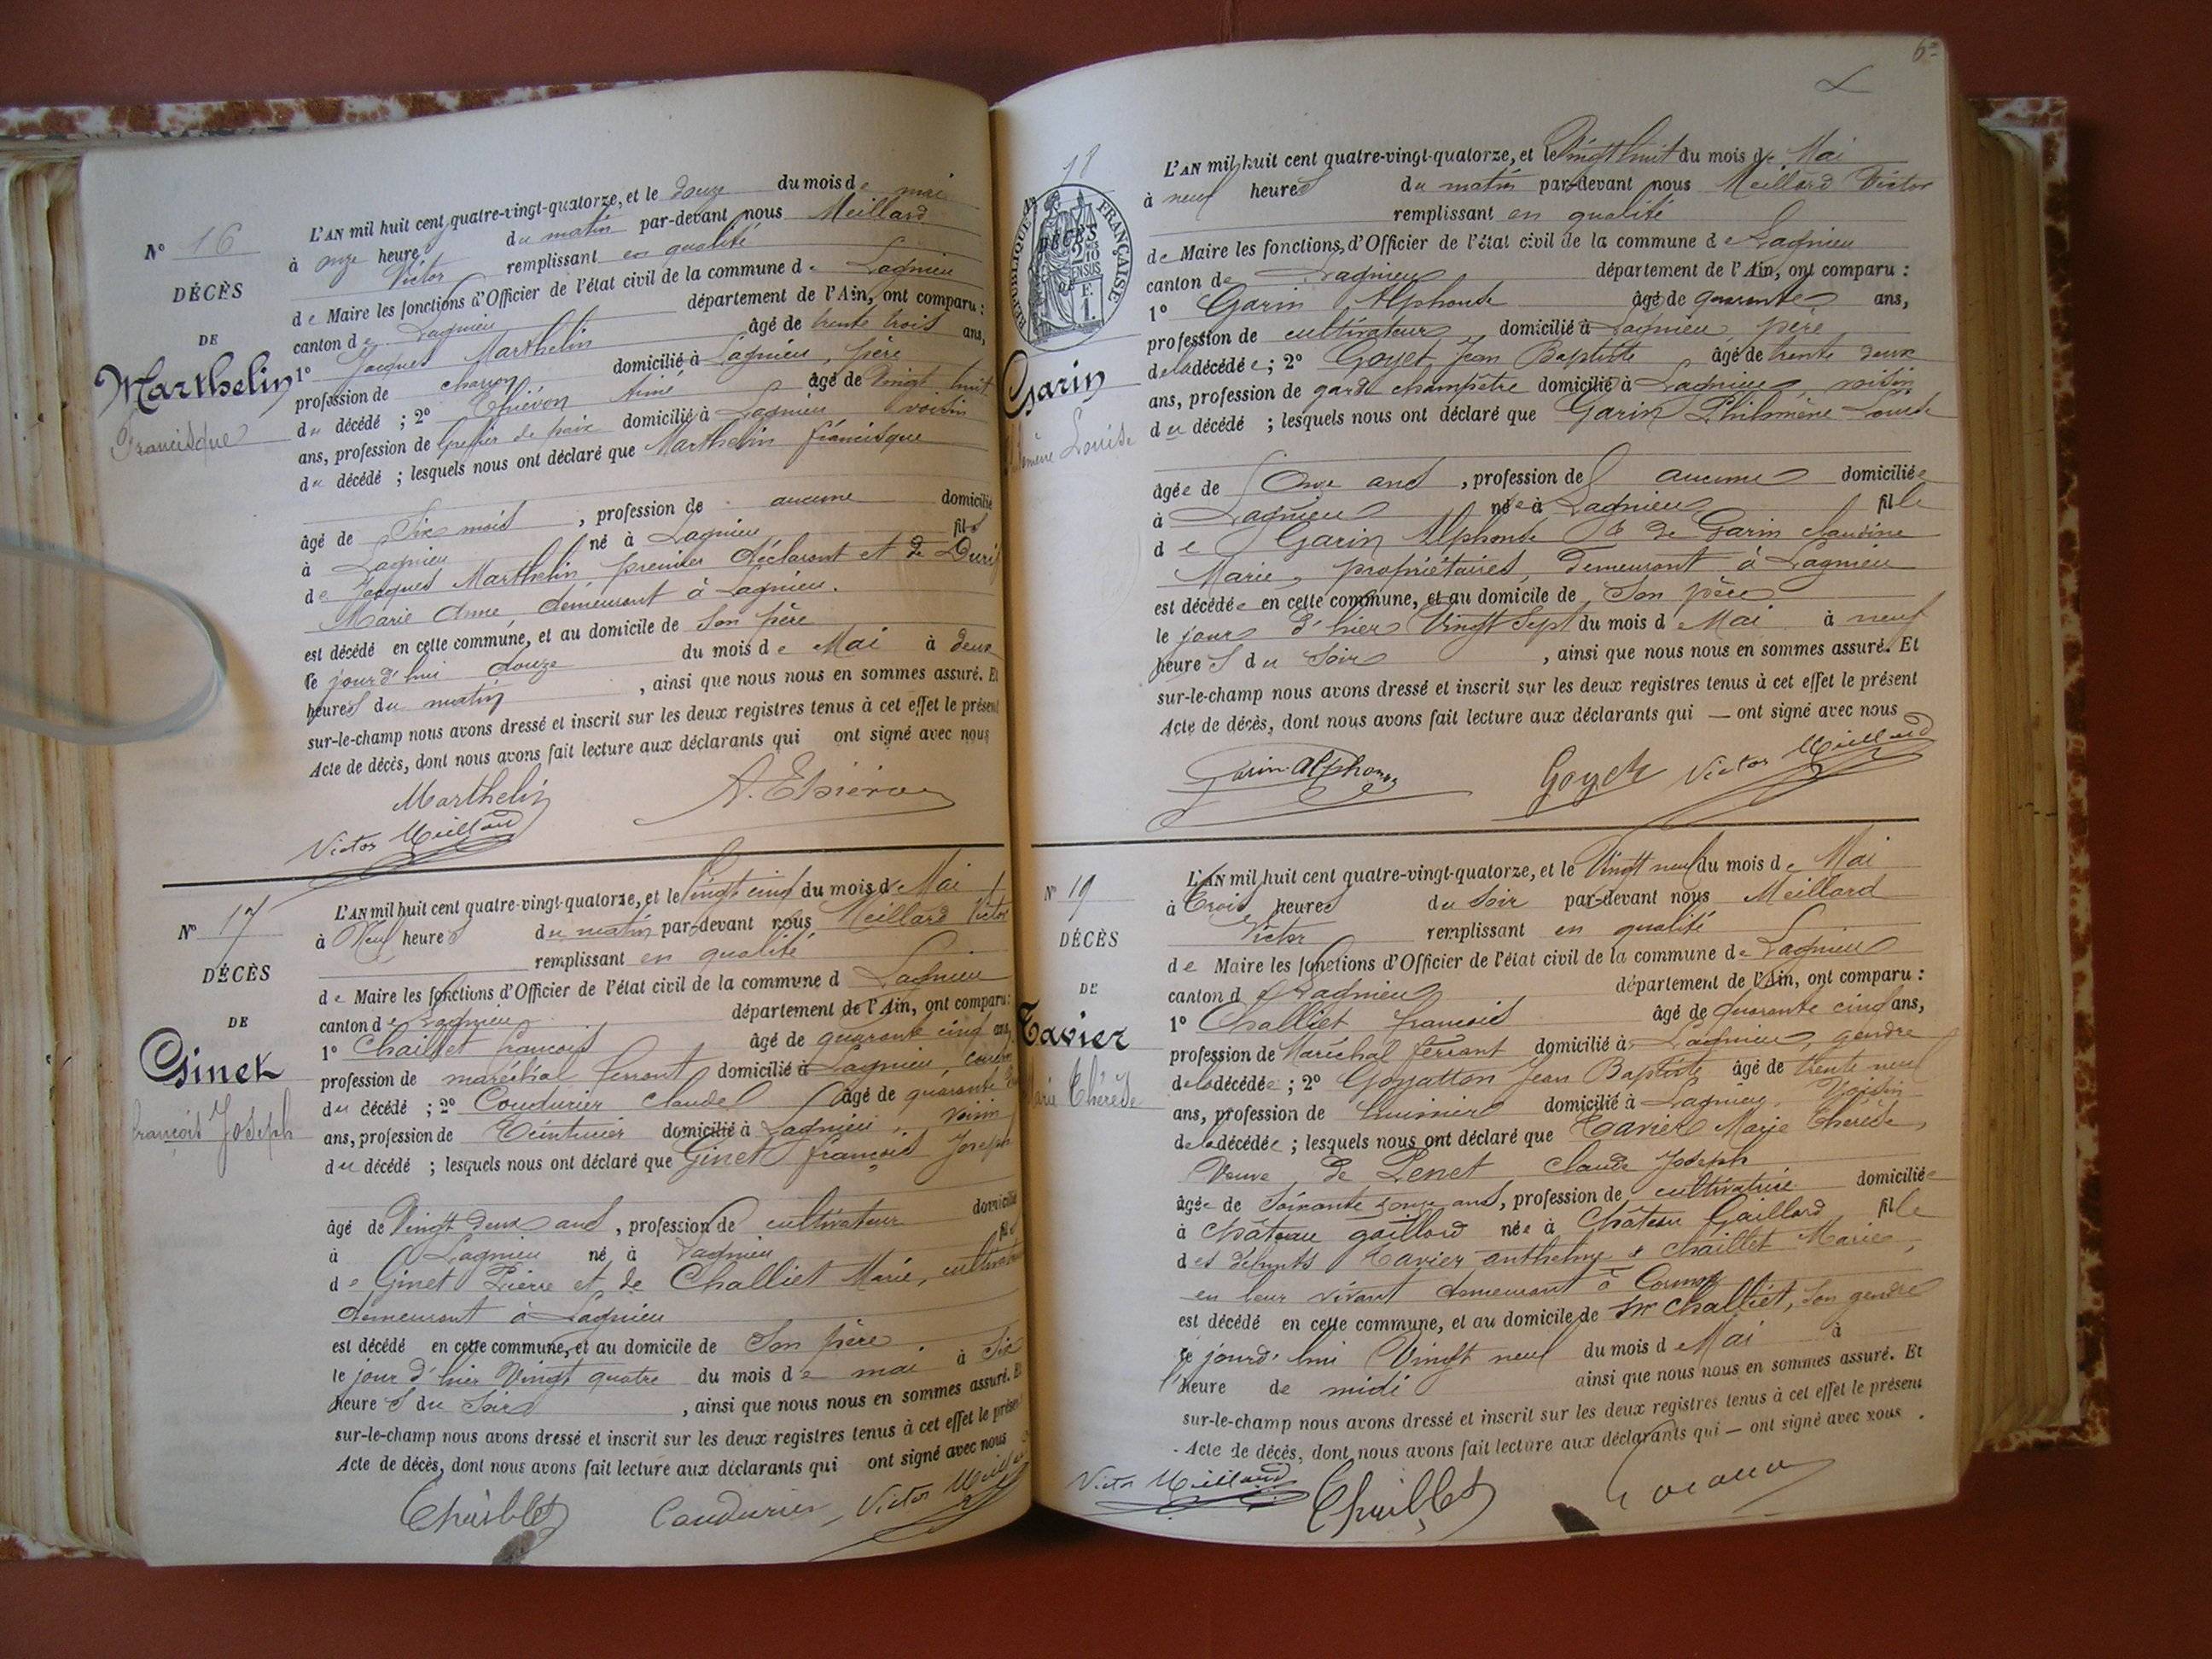 Nº 16
DÉCÈS
DE
Marthelin
Francisque
L'AN mil huit cent quatre-vingt-quatorze, et le douze du mois de mai
à onze heures du matin par-devant nous Meillard
Victor remplissant en qualité
de Maire les fonctions d'Officier de l'état civil de la commune de Lagnieu
canton de Lagnieu département de l'Ain, ont comparu :
1º Jacques Marthelin âgé de trente trois ans,
profession de charron domicilié à Lagnieu, père
du décédé ; 2º Thiévon Aimé âgé de Vingt huit
ans, profession de Greffier de paix domicilié à Lagnieu voisin
du décédé ; lesquels nous ont déclaré que Marthelin francisque
âgé de Six mois , profession de aucune domicilié
à Lagnieu né à Lagnieu fils
de Jacques Marthelin, premier déclarant et de
Marie Anne, demeurant à Lagnieu.
est décédé en cette commune, et au domicile de Son père
le jourd'hui douze du mois de Mai à deux
heures du matin , ainsi que nous nous en sommes assuré. Et
sur-le-champ nous avons dressé et inscrit sur les deux registres tenus à cet effet le présent
Acte de décès, dont nous avons fait lecture aux déclarants qui ont signé avec nous
Marthelin A. Thiévon
Victor Meillard
Nº 17
DÉCÈS
DE
Ginet
François Joseph
L'AN mil huit cent quatre-vingt-quatorze, et le Vingt cinq du mois de Mai
à Neuf heures du matin par-devant nous Meillard Victor
remplissant en qualité
de Maire les fonctions d'Officier de l'état civil de la commune d Lagnieu
canton de Lagnieu département de l'Ain, ont comparu :
1º Chaillet François âgé de quarante cinq ans,
profession de maréchal ferrant domicilié à Lagnieu, cousin
du décédé ; 2º Coudurier Claude âgé de quarante
ans, profession de Teinturier domicilié à Lagnieu, voisin
du décédé ; lesquels nous ont déclaré que Ginet François Joseph
âgé de Vingt deux ans , profession de cultivateur domicilié
à Lagnieu né à Lagnieu fils
de Ginet Pierre et de Challiet Marie,
demeurant à Lagnieu
est décédé en cette commune, et au domicile de Son père
le jour d'hier Vingt quatre du mois de mai à Six
heures du Soir , ainsi que nous nous en sommes assuré. Et
sur-le-champ nous avons dressé et inscrit sur les deux registres tenus à cet effet le présent
Acte de décès, dont nous avons fait lecture aux déclarants qui ont signé avec nous
Chaillet Coudurier Victor Meillard
18
RÉPUBLIQUE FRANÇAISE
DÉCÈS
Garin
Philomène Louise
L'AN mil huit cent quatre-vingt-quatorze, et le Vingt huit du mois de Mai
à neuf heures du matin par-devant nous Meillard Victor
remplissant en qualité
de Maire les fonctions d'Officier de l'état civil de la commune de Lagnieu
canton de Lagnieu département de l'Ain, ont comparu :
1º Garin Alphonse âgé de quarante ans,
profession de cultivateur domicilié à Lagnieu, père
de la décédée ; 2º Goyet, Jean Baptiste âgé de trente deux
ans, profession de garde champêtre domicilié à Lagnieu, voisin
du décédé ; lesquels nous ont déclaré que Garin Philomène Louise
âgée de Onze ans , profession de aucune domiciliée
à Lagnieu née à Lagnieu fille
de Garin Alphonse & de Garin Claudine
Marie, propriétaires, demeurant à Lagnieu
est décédée en cette commune, et au domicile de Son père
le jour d'hier Vingt Sept du mois d Mai à neuf
heures du Soir , ainsi que nous nous en sommes assuré. Et
sur-le-champ nous avons dressé et inscrit sur les deux registres tenus à cet effet le présent
Acte de décès, dont nous avons fait lecture aux déclarants qui — ont signé avec nous
Garin Alphonse Goyet Victor Meillard
Nº 19
DÉCÈS
DE
Tavier
Marie Thérèse
L'AN mil huit cent quatre-vingt-quatorze, et le Vingt neuf du mois de Mai
à Trois heures du Soir par-devant nous Meillard
Victor remplissant en qualité
de Maire les fonctions d'Officier de l'état civil de la commune de Lagnieu
canton de Lagnieu département de l'Ain, ont comparu :
1º Challiet François âgé de quarante cinq ans,
profession de Maréchal ferrant domicilié à Lagnieu, gendre
de la décédée ; 2º Jean Baptiste âgé de trente neuf
ans, profession de domicilié à Lagnieu, Voisin
de la décédée ; lesquels nous ont déclaré que Tavier Marie Thérèse,
Veuve de Penet Claude Joseph
âgée de Soixante ans, profession de cultivatrice domiciliée
à Château gaillard née à Château Gaillard fille
des défunts Tavier anthelme & Chaillet Marie,
en leur vivant demeurant à
est décédé en cette commune, et au domicile de Mr Challiet, son gendre
le jourd'hui Vingt neuf du mois d Mai à
l'heure de midi ainsi que nous nous en sommes assuré. Et
sur-le-champ nous avons dressé et inscrit sur les deux registres tenus à cet effet le présent
Acte de décès, dont nous avons fait lecture aux déclarants qui — ont signé avec nous
Victor Meillard Chaillet